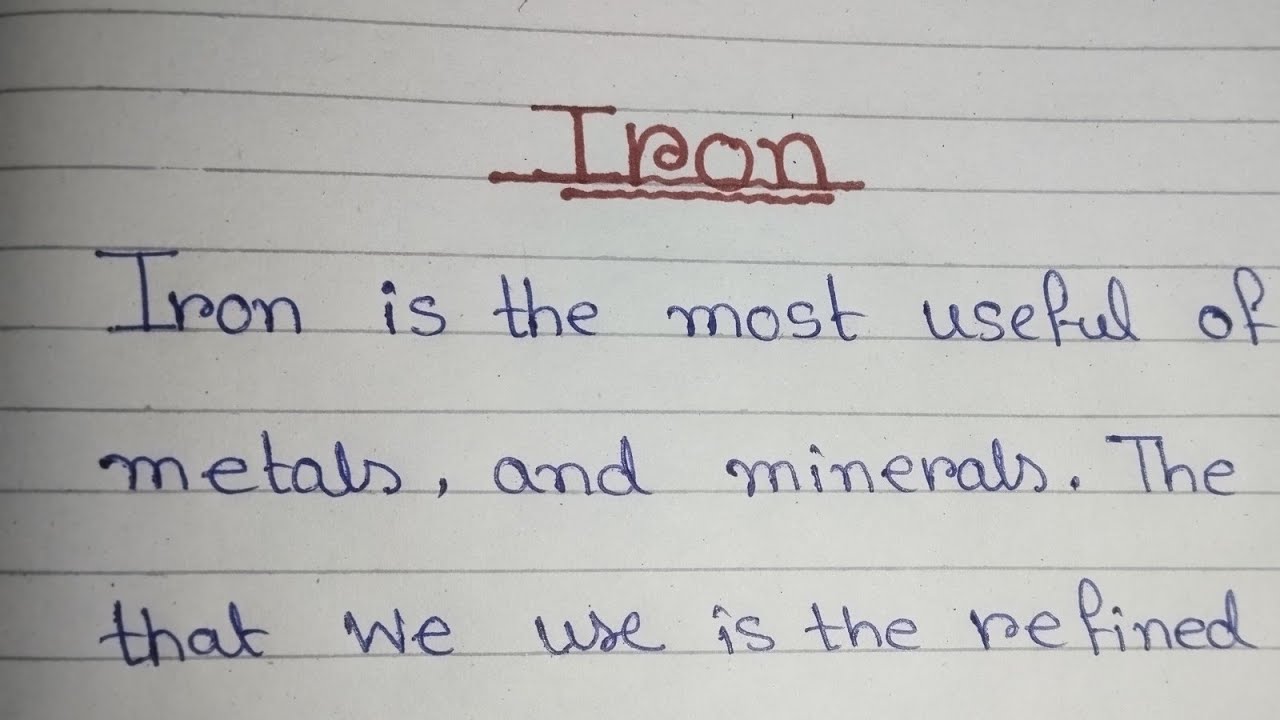 Iron
Iron is the most useful of
metals, and minerals. The
that we use is the refined